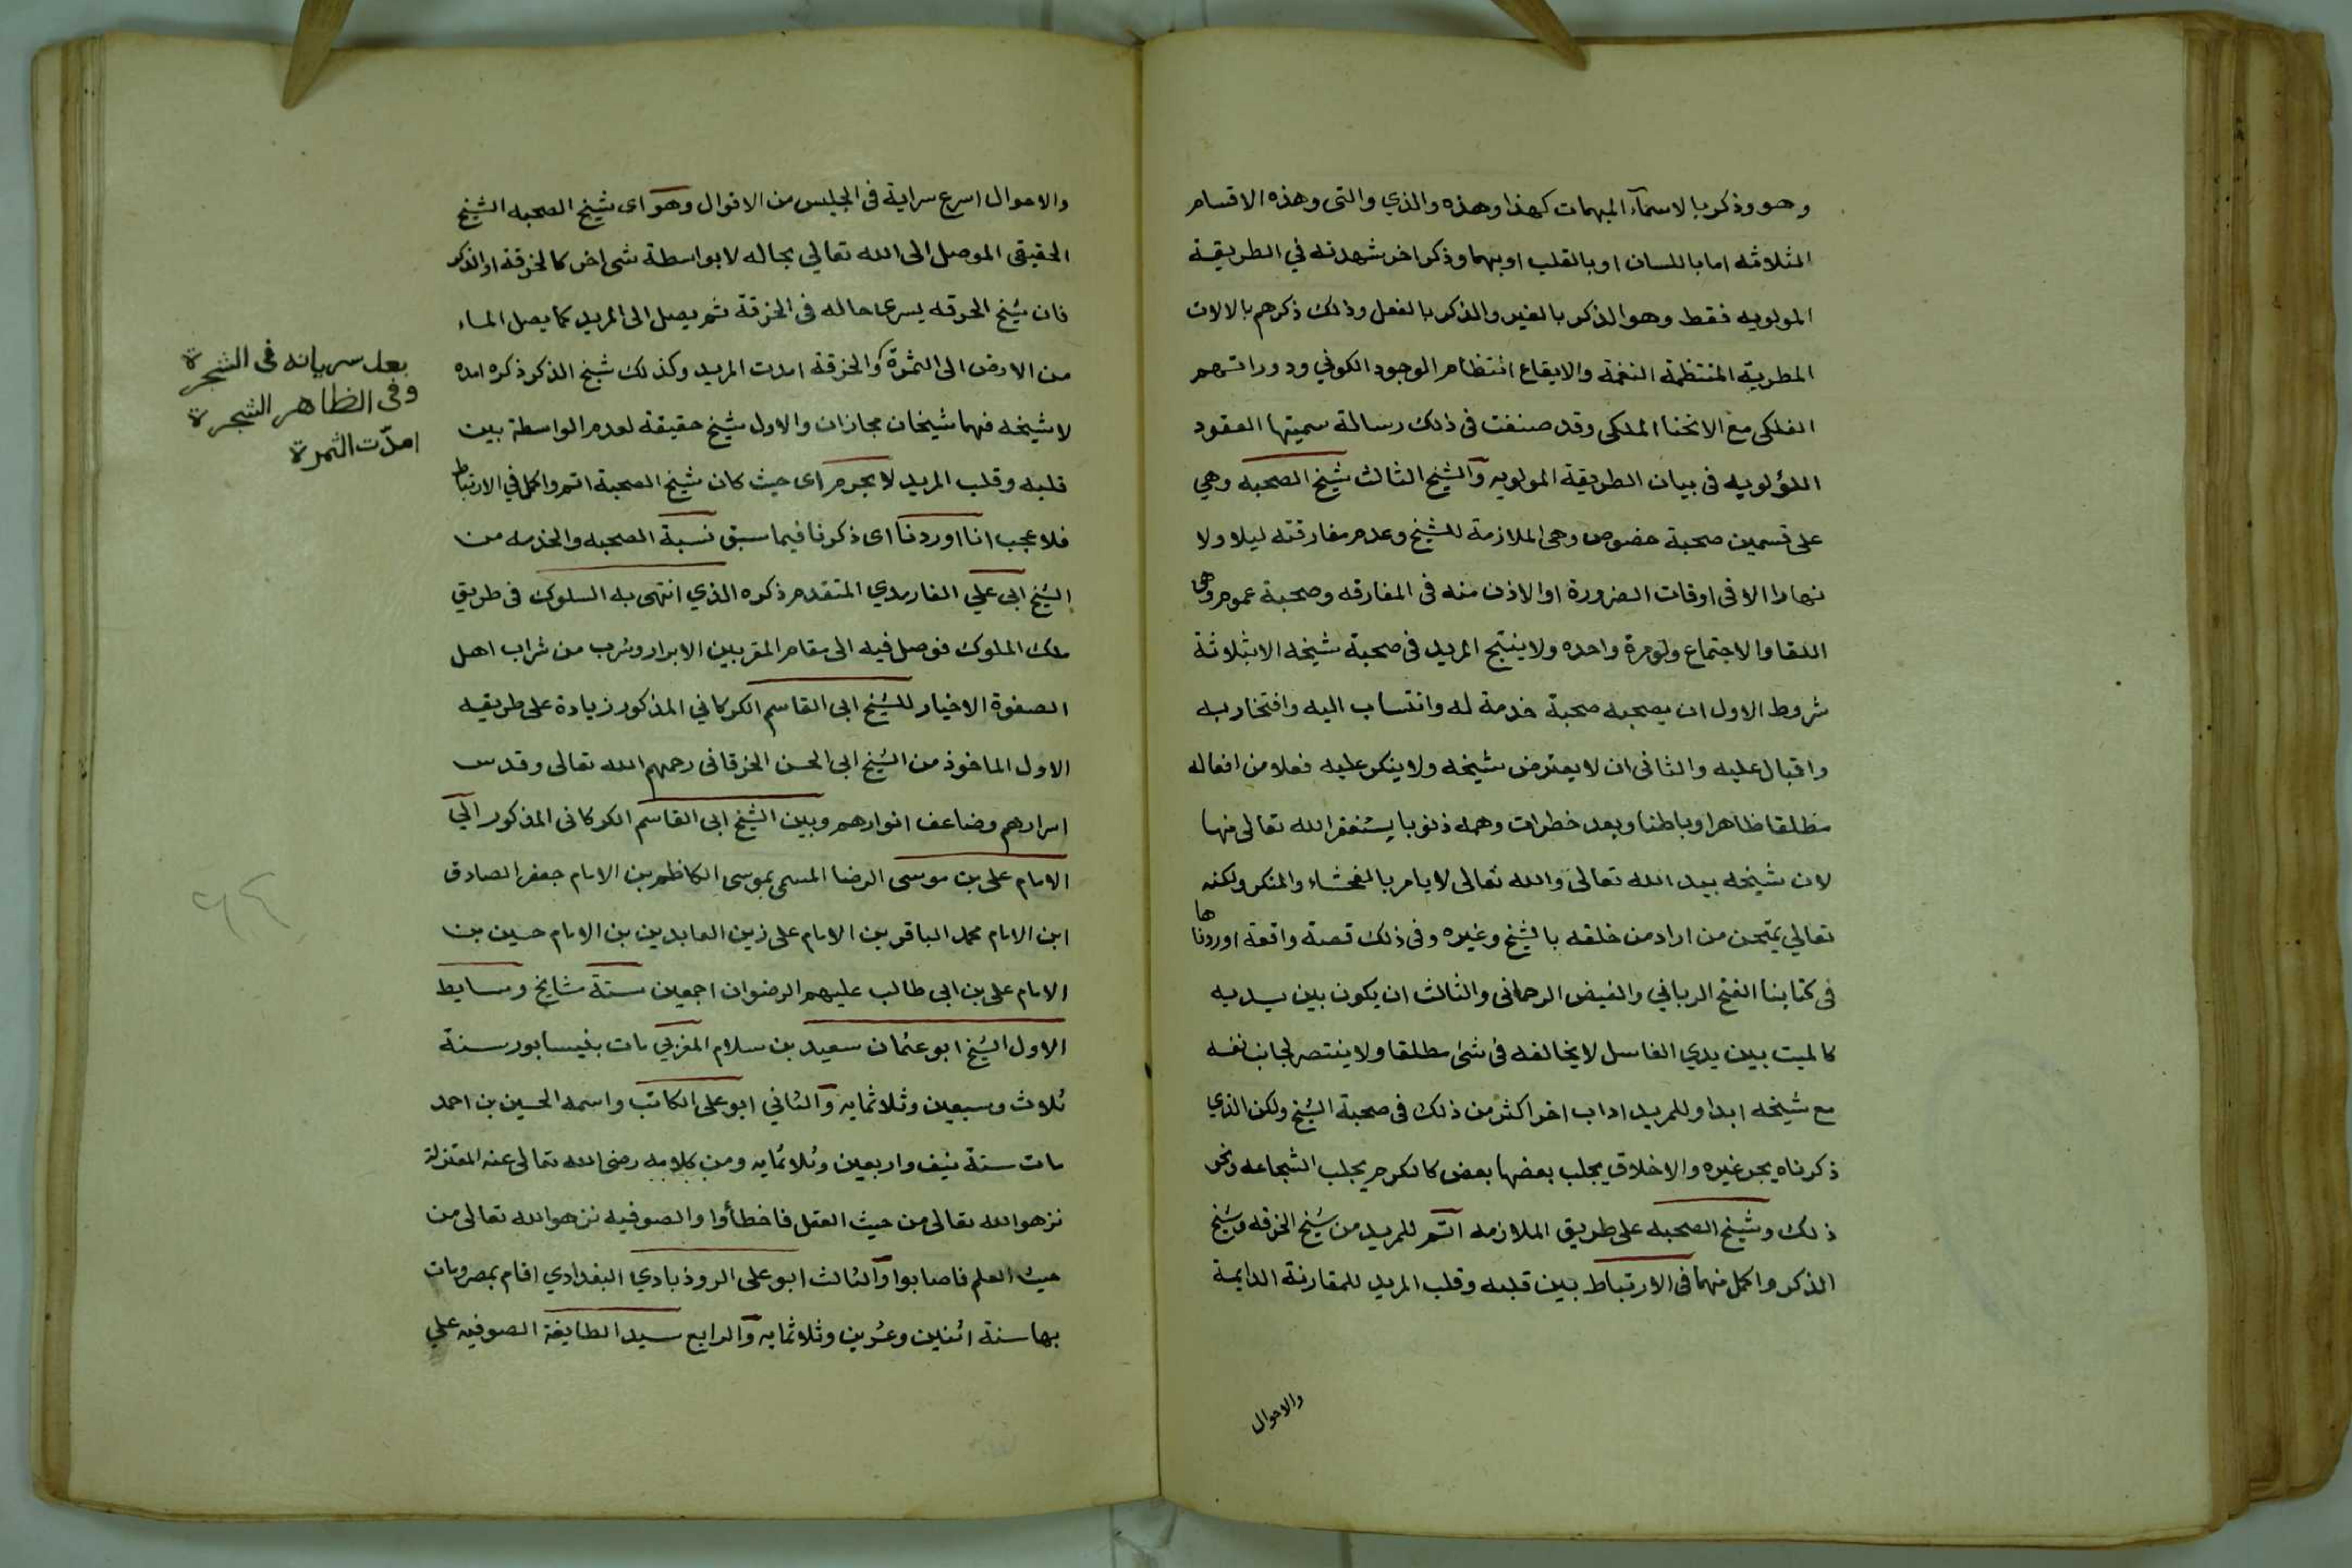 وهو وذكر بالاسمآء المبهمات كهذا وهذه والذي والتى وهذه الاقسام
الثلاثه اما باللسان او بالقلب او بهما وذكر اخر شهدته في الطريقة
المولويه فقط وهو الذكر بالغير والذكر بالفعل وذلك ذكرهم بالالات
المطربة المنتظمة النغمة والايقاع انتظام الوجود الكوني ودورانهم
الفلكى مع الانحنا الملكى وقد صنفت فى ذلك رسالة سميتها العقود
اللؤلويه فى بيان الطريقة المولويه والشيخ الثالث شيخ الصحبه وهي
على قسمين صحبة خصوص وهى الملازمة للشيخ وعدم مفارقته ليلا ولا
نهارا الا فى اوقات الضرورة او الاذن منه فى المفارقه وصحبة عموم وهى
اللقا والاجتماع ولو مرة واحده ولا ينتج المريد فى صحبة شيخه الا بثلاثة
شروط الاول ان يصحبه صحبة خدمة له وانتساب اليه وافتخار به
واقبال عليه والثانى ان لا يعترض شيخه ولا ينكر عليه فعلا من افعاله
مطلقا ظاهرا وباطنا ويعد خطرات وهمه ذنوبا يستغفر الله تعالى منها
لان شيخه بيد الله تعالى والله تعالى لا يامر بالفحشاء والمنكر ولكنه
تعالي يمتحن من اراد من خلقه بالشيخ وغيره وفى ذلك قصة واقعة اوردناها
فى كتابنا الفتح الرباني والفيض الرحمانى والثالث ان يكون بين يديه
كالميت بين يدي الغاسل لا يخالفه فى شئ مطلقا ولا ينتصر لجانب نفسه
مع شيخه ابدا وللمريد اداب اخر اكثر من ذلك فى صحبة الشيخ ولكن الذي
ذكرناه يجر غيره والاخلاق يجلب بعضها بعض كالكرم يجلب الشجاعه ونحو
ذلك وشيخ الصحبه على طريق الملازمه اتم للمريد من شيخ الخرقه وشيخ
الذكر واكمل منهما فى الارتباط بين قلبه وقلب المريد للمقارنة الدايمة
والاحوال
والاحوال اسرع سراية فى الجليس من الاقوال وهو اى شيخ الصحبه الشيخ
الحقيقى الموصل الى الله تعالي بحاله لا بواسطة شى اخر كالخرقة او الذكر
فان شيخ الخرقه يسرى حاله فى الخرقة ثم يصل الى المريد كما يصل الماء
من الارض الى الثمرة والخرقة امدت المريد وكذلك شيخ الذكر ذكره امده
لا شيخه فهما شيخان مجازان والاول شيخ حقيقة لعدم الواسطة بين
قلبه وقلب المريد لا بجرم اى حيث كان شيخ الصحبة اتم واكمل في الارتباط
فلا عجب انا اوردنا اى ذكرنا فيما سبق نسبة الصحبه والخدمه من
الشيخ ابى علي الفارمدي المتقدم ذكره الذي انتهى به السلوك فى طريق
ملك الملوك فوصل فيه الى مقام المقربين الابرار وشرب من شراب اهل
الصفوة الاخيار للشيخ ابى القاسم الكركاني المذكور زيادة على طريقه
الاول الماخوذ من الشيخ ابى الحسن الخرقانى رحمهم الله تعالى وقدس
اسرارهم وضاعف انوارهم وبين الشيخ ابى القاسم الكركانى المذكور الي
الامام على بن موسى الرضا المسمى بموسى الكاظم بن الامام جعفر الصادق
ابن الامام محمد الباقر بن الامام على زين العابدين بن الامام حسين بن
الامام على بن ابى طالب عليهم الرضوان اجمعين ستة مشايخ وسايط
الاول الشيخ ابو عثمان سعيد بن سلام المغربي مات بنيسابور سنة
ثلاث وسبعين وثلاثمايه والثاني ابو على الكاتب واسمه الحسين بن احمد
مات سنة نيف واربعين وثلاثمايه ومن كلامه رضى الله تعالى عنه المعتزلة
نزهوا الله تعالى من حيث العقل فاخطأوا والصوفيه نزهوا الله تعالى من
حيث العلم فاصابوا والثالث ابو على الروذبادي البغدادي اقام بمصر ومات
بها سنة اثنين وعشرين وثلاثمايه والرابع سيد الطايفة الصوفيه علي
بعد سريانه فى الشجرة
وفى الظاهر الشجرة
امدّت الثمرة